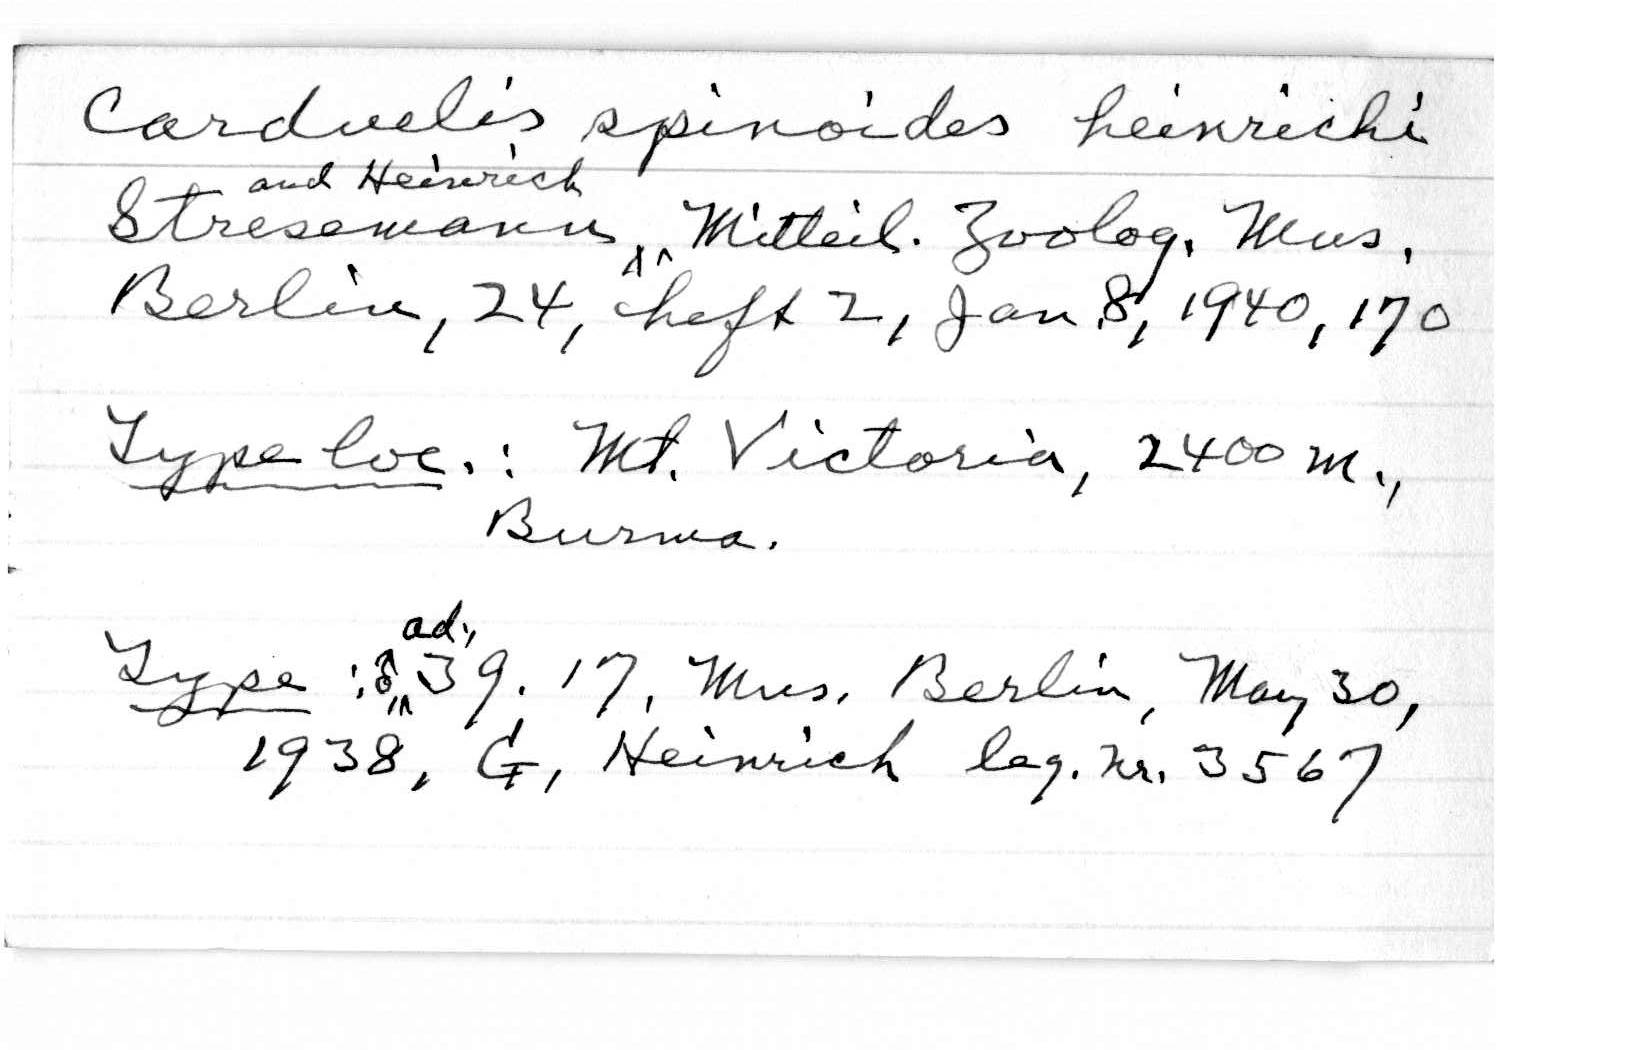 Carduelis spinoides heinrichi
and Heinrich
Stresemann, Mitteil. Zoolog. Mus.
Berlin, 24, heft 2, Jan. 8, 1940, 170
Type loc.: Mt. Victoria, 2400 m.,
Burma.
ad.,
Type: ♂, 39.17, Mus. Berlin, May 30,
1938, G. Heinrich leg. nr. 3567